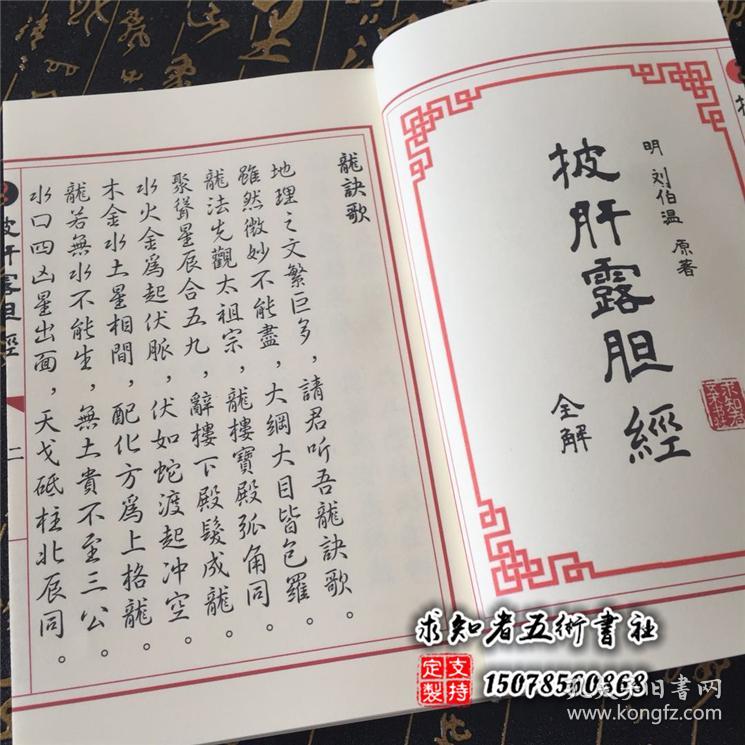 明 刘伯温 原著
披肝露胆經
全解
龍訣歌
地理之文繁巨多，請君听吾龍訣歌。
雖然微妙不能盡，大綱大目皆包羅。
龍法先觀太祖宗，龍樓寶殿弧角同。
聚聳星辰合五九，辭樓下殿髮成龍。
水火金爲起伏脈，伏如蛇渡起冲空。
木金水土星相間，配化方爲上格龍。
龍若無水不能生，無土貴不至三公。
水口四凶星出面，天戈砥柱北辰同。
披肝露胆經
二
求知者五術書社
支持定製
15078560868
孔夫子旧書网
www.kongfz.com